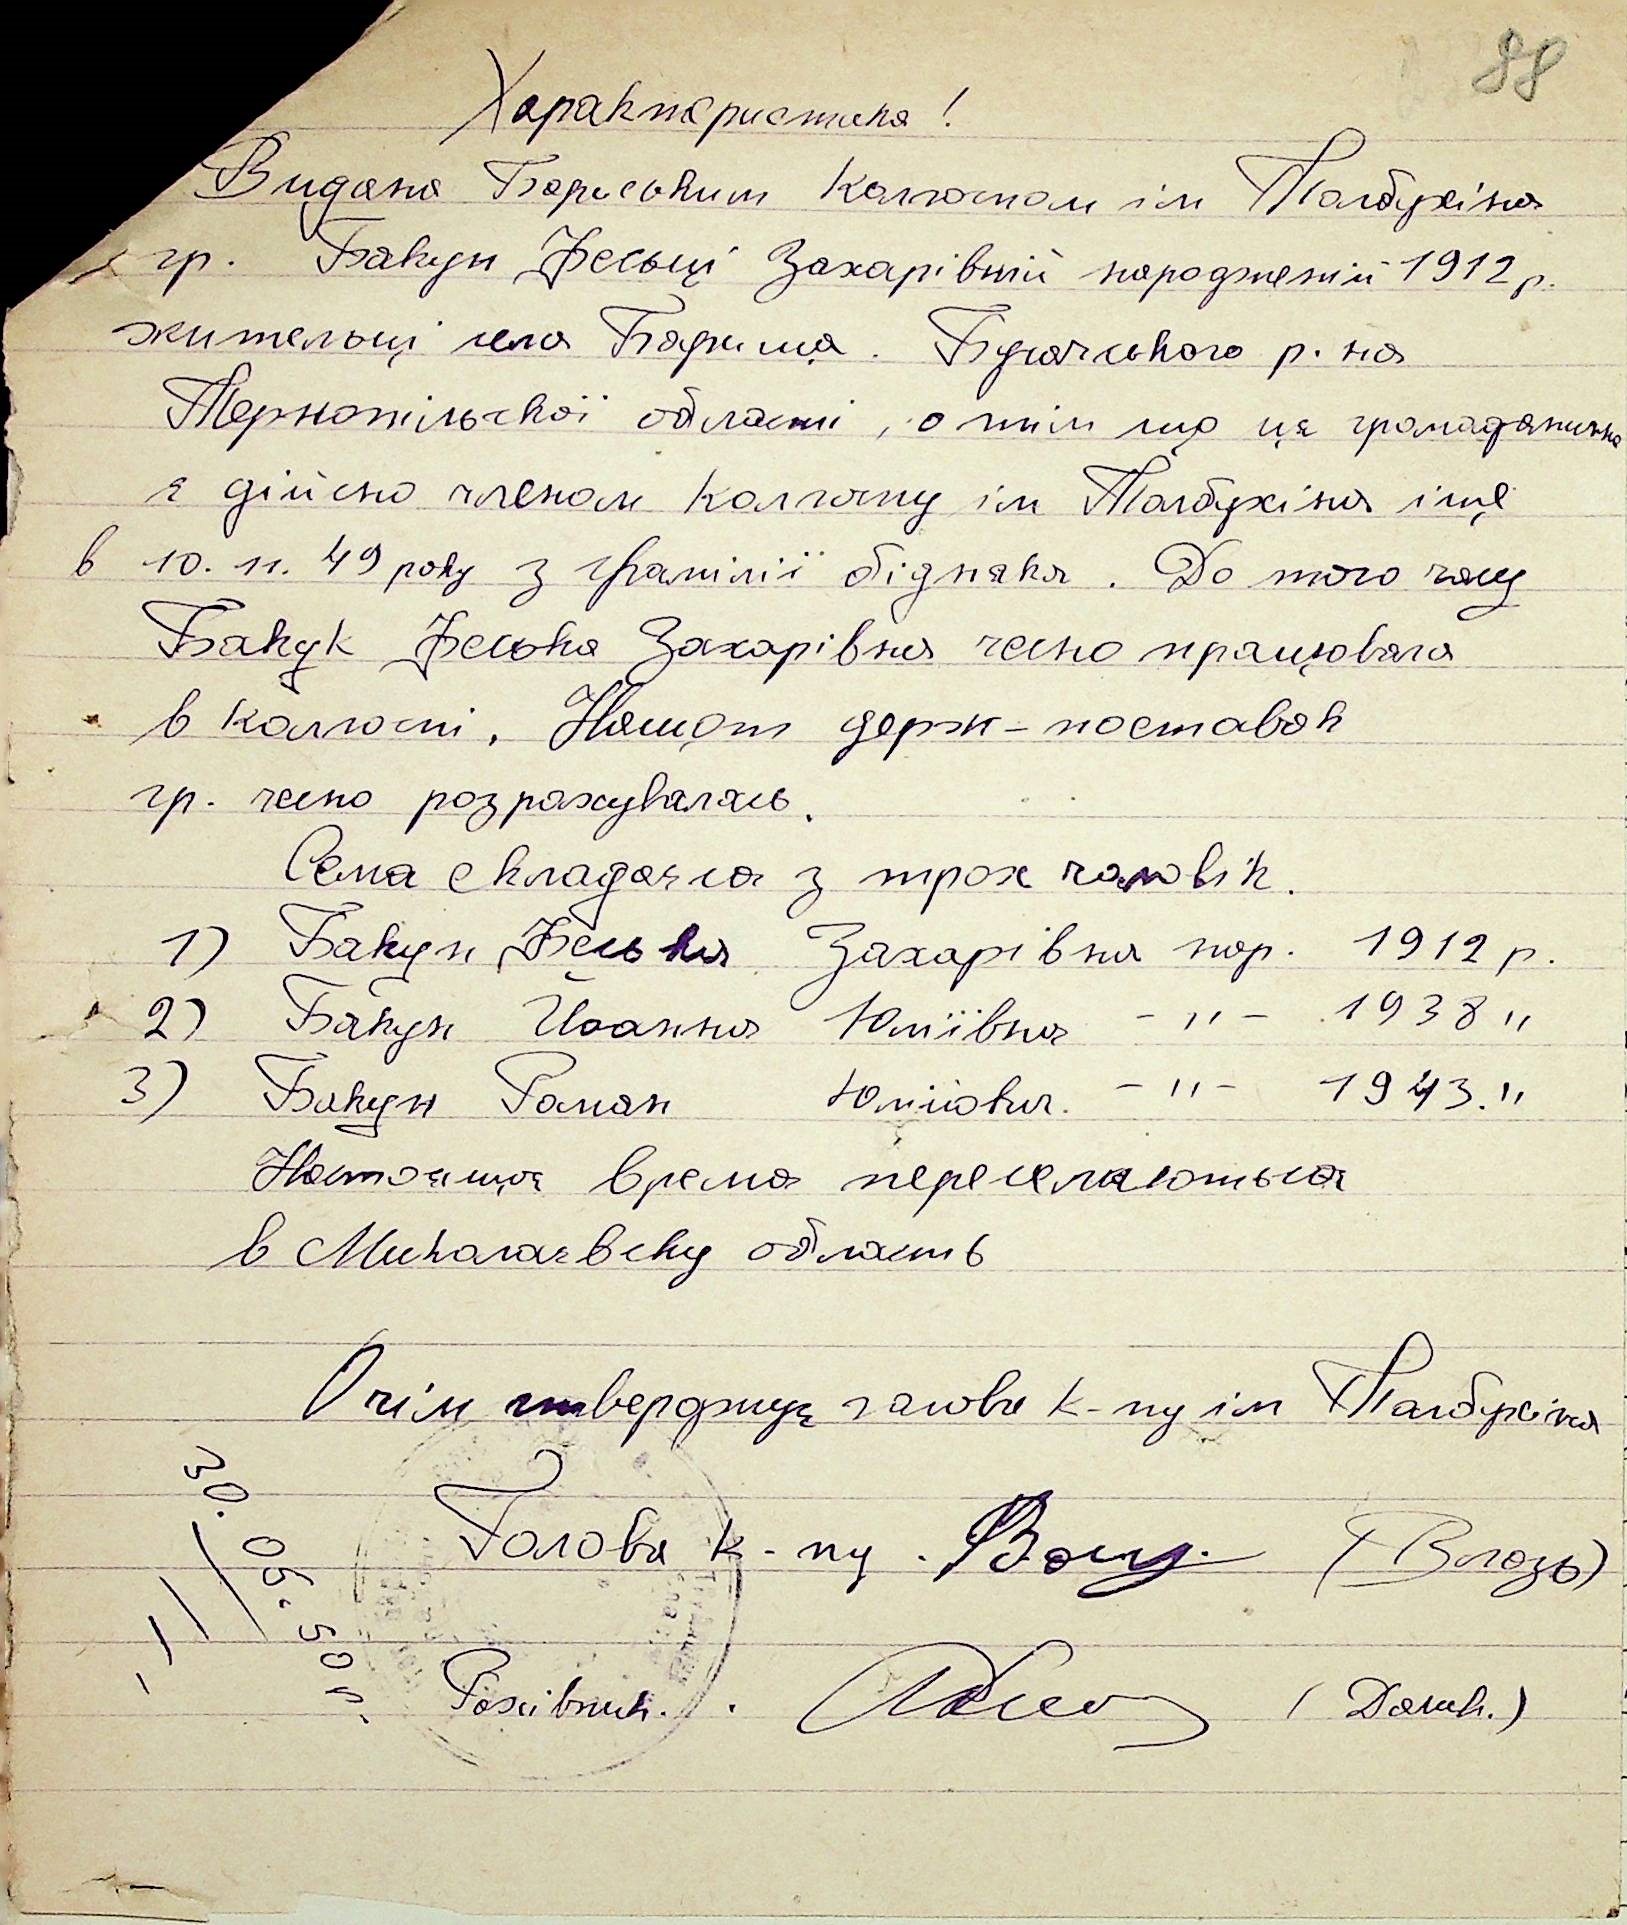 88
Характеристика!
Видана Бариським Колгоспом ім Толбухіна
гр. Бакун Феські Захарівній народженій 1912 р.
жительці села Бариша. Бучачського р. на
Тернопільської області, о тім що ця громадянинка
є дійсно членом Колгоспу ім Толбухіна іще
в 10. 11. 49 року з фамілії бідняка. До того часу
Бакун Феська Захарівна чесно працювала
в Колгоспі. Нащот держ-поставок
гр. чесно розрахувалась.
Семя складаєся з трох чоловік.
1) Бакун Феська Захарівна нар. 1912 р.
2) Бакун Йоанна Юліївна -"- 1938 "
3) Бакун Роман Юлійович. -"- 1943. "
Настояще время переселяютьця
в Миколаєвску область
О чім тверджує голова к-пу ім Толбухіна
Голова к-пу. (Влозь)
30. 05. 50 р.
Рахівник. (Данк.)